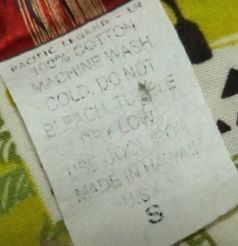 PACIFIC LEGEND
100% COTTON
MACHINE WASH
COLD. DO NOT
BLEACH. TUMBLE
DRY LOW
USE COOL IRON
MADE IN HAWAII
U.S
S